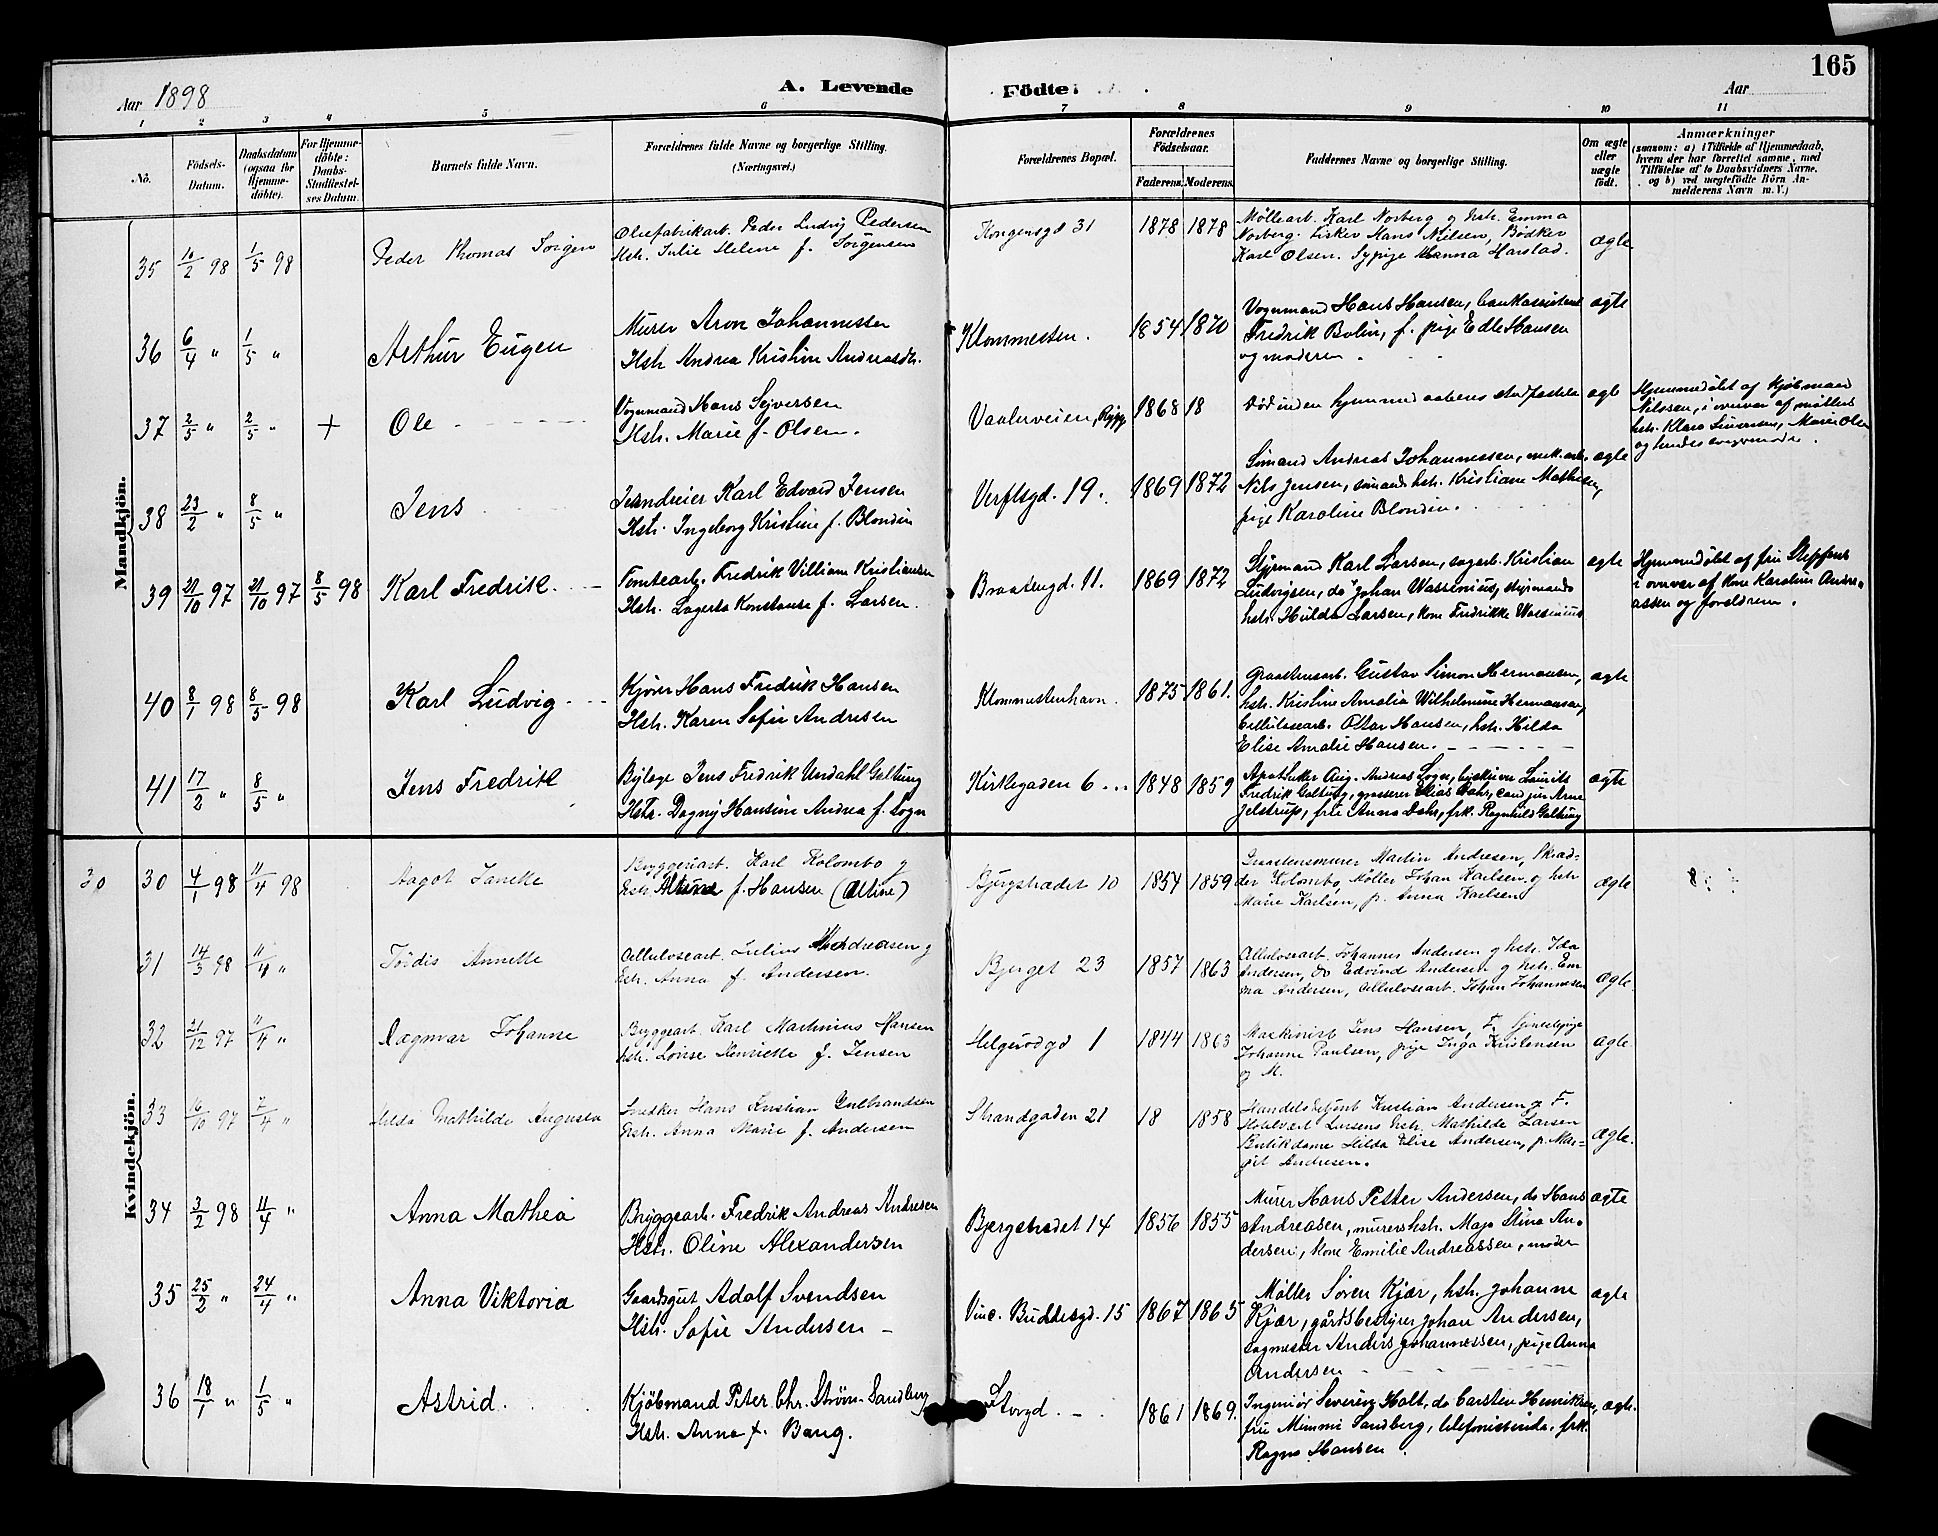 165
Aar 1898
A. Levende
Födte:
Aar
1 2 3 4 5 6 7 8 9 10 11
No.
Födsels-
Datum.
Daabsdatum
(ogsaa for
Hjemme-
döbte).
For Hjemme-
döbte:
Daabs-
Stadfæstel-
ses Datum.
Barnets fulde Navn.
Forældrenes fulde Navne og borgerlige Stilling.
(Næringsvei.)
Forældrenes Bopæl.
Forældrenes
Födselsaar.
Faderens. Moderens.
Faddernes Navne og borgerlige Stilling.
Om ægte
eller
uægte
födt.
Anmærkninger
(saasom: a) i Tilfælde af Hjemmedaab,
hvem der har forrettet samme, med
Tilföielse af to Daabsvidners Navne.
og b) ved uægtefödte Börn An-
melderens Navn m. V.)
Mandkjön.
35 98 1/5 98 Peder Thomas Sörgen
Oliefabrikarb. Peder Ludvig Pedersen
Hstr. Julie Helene f. Sörgensen
Kongensgd 31 1878 1878
Möllearb. Karl Norberg og hstr. Emma
Norberg. Fisker Hans Nielsen, Bödker
Karl Olsen. Sypige Hanna Harstad.
ægte
36 6/4 " 1/5 " Arthur Eugen
Murer Aron Johannessen
Hstr. Andrea Kristine Andreasdtr.
Klommesten. 1854 1870
Vognmand Hans Hansen, bankassistent
Fredrik Bolin, f. pige Edle Hansen
og moderen.
ægte
37 2/5 " 2/5 " + Ole
Vognmand Hans Sejversen
Hstr. Marie f. Olsen.
Vaalerveien, Rygge 1868 18
Död inden hjemmedaabens stadfæstelse
ægte
Hjemmedöbt af kjöbmand
Nilssen, i overvær af möllers
hstr. Klara Marie Olsen
og hendes
38 23/2 " 8/5 " Jens
Karl Edvard Jensen
Hstr. Ingeborg Kristine f. Blondin
Verftsgd. 19. 1869 1872
Sömand Andreas Johannessen, mek. arb.
Nils Jensen, sömands hstr. Kristiane Mathisen,
pige Karoline Blondin.
ægte
39 21/10 97 21/10 97 8/5 98 Karl Fredrik.
Tomtearb. Fredrik Villiam Kristiansen
Hstr. Lagerta Konstanse f. Larsen.
Braatengd. 11. 1869 1872
Styrmand Karl Larsen, sagarb. Kristian
Ludvigsen, do Johan Wassenius, styrmands
hstr. Hilda Larsen, kone Fredrikke Wassenius
ægte
Hjemmedöbt af fru Steffens
i overvær af kone Karoline Andre-
assen og forældrene.
40 8/1 98 8/5 98 Karl Ludvig
Kjörer Hans Fredrik Hansen
Hstr. Karen Sofie Andresen
Klommestenhavn. 1875 1861.
Graastensarb. Gustav Simon Hermansen,
hstr. Kristine Amalia Wilhelmine Hermansen,
Cellulosearb. Ottar Hansen, hstr. Hilda
Elise Amalie Hansen.
ægte
41 17/2 " 8/5 " Jens Fredrik
Bylæge Jens Fredrik Undahl Galtung
Hstr. Dagny Hansine Andrea f. Sogn
Kirkegaden 6 1848 1859
Apotheker Aug. Andreas Sogn, Laurits
Fredrik Galtung, grosserer Elias Dahr, cand jur Arne
Jelstrup, fru Anna Dahr, frk. Ragnhild Galtung
ægte
Kvindekjön.
30 30 4/1 98 11/4 98 Aagot Janette
Bryggeriarb. Karl Kolombo og
hstr. Altine f. Hansen (Altine)
Bjergstrædet 10 1857 1859
Graastensmurer Martin Andresen, Skræd-
der Kolombo, Möller Johan Karlsen og hstr.
Marie Karlsen, p. Anna Karlsen
ægte
31 14/3 98 11/4 " Tordis Annette
Cellulosearb. Julius Andreasen og
hstr. Anna f. Andersen.
Bjerget 23 1857 1863
Cellulosearb. Johannes Andersen og hstr. Ida
Andersen, do Edvind Andersen og hstr. Em-
ma Andersen, Cellulosearb. Johan Johannesen
ægte.
32 21/12 97 11/4 " Dagmar Johanne
Bryggearb. Karl Martinius Hansen
hstr. Lovise Henriette f. Jensen
Helgerödgd 1 1844 1863
Maskinist Jens Hansen, F. tjenestepige
Johanne Paulsen, pige Inga Kristensen
og M.
ægte.
33 16/10 97 7/4 " Hilda Mathilde Augusta
Snedker Hans Kristian Gulbrandsen
hstr. Anna Marie f. Andersen
Strandgaden 21 18 1858
Handelsbetjent Kristian Andersen, F.
Hotelvært Larsens hstr. Mathilde Larsen
Butikdame Hilda Elise Andersen, p. Mar-
git Andresen.
ægte.
34 3/2 98 11/4 " Anna Mathea
Bryggearb. Fredrik Andreas Andresen
Hstr. Oline Alexandersen
Bjergstrædet 14 1856 1855
Murer Hans Petter Andersen, do Hans
Andreasen, murers hstr. Maja Stina An-
dersen, kone Emilie Andreassen, moder
ægte
35 25/2 " 24/4 " Anna Viktoria
Gaardsgut Adolf Svendsen
Hstr. Sofie Andersen -
Vinc. Buddesgd. 15 1867 1865
Möller Sören Kjær, hstr. Johanne
Kjær, gårdsbestyrer Johan Andersen,
sagmester Anders Johannessen, pige Anna
Andersen
ægte
36 18/1 " 1/5 " Astrid.
Kjöbmand Peter Chr. Ström-Sandberg
Hstr. Anna f. Bang.
Storgd. 1861 1869.
Ingeniör Severin Holt, do Carsten Henriksen,
fru Mimmi Sandberg, telefonistinde frk.
Ragna Hansen.
ægte.